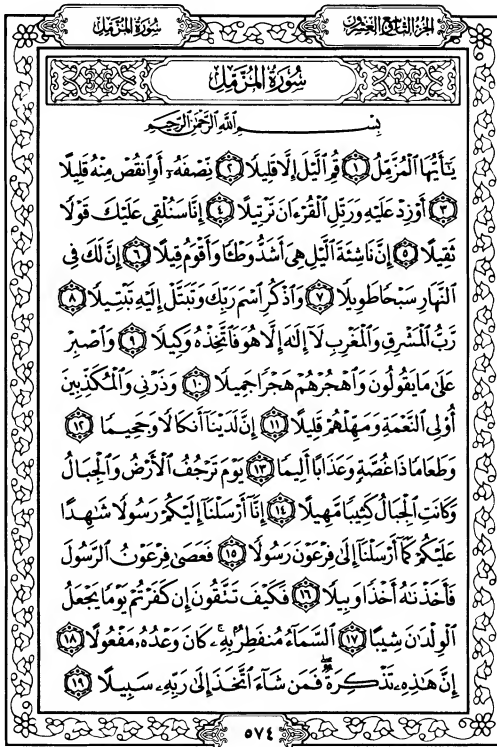 الجزء التاسع والعشرون
سُورَةُ المُزَّمِّل
سُورَةُ المُزَّمِّل
بِسۡمِ ٱللَّهِ ٱلرَّحۡمَٰنِ ٱلرَّحِيمِ
يَٰٓأَيُّهَا ٱلۡمُزَّمِّلُ ١ قُمِ ٱلَّيۡلَ إِلَّا قَلِيلٗا ٢ نِّصۡفَهُۥٓ أَوِ ٱنقُصۡ مِنۡهُ قَلِيلًا
٣ أَوۡ زِدۡ عَلَيۡهِ وَرَتِّلِ ٱلۡقُرۡءَانَ تَرۡتِيلًا ٤ إِنَّا سَنُلۡقِي عَلَيۡكَ قَوۡلٗا
ثَقِيلًا ٥ إِنَّ نَاشِئَةَ ٱلَّيۡلِ هِيَ أَشَدُّ وَطۡـٔٗا وَأَقۡوَمُ قِيلًا ٦ إِنَّ لَكَ فِي
ٱلنَّهَارِ سَبۡحٗا طَوِيلٗا ٧ وَٱذۡكُرِ ٱسۡمَ رَبِّكَ وَتَبَتَّلۡ إِلَيۡهِ تَبۡتِيلٗا ٨
رَّبُّ ٱلۡمَشۡرِقِ وَٱلۡمَغۡرِبِ لَآ إِلَٰهَ إِلَّا هُوَ فَٱتَّخِذۡهُ وَكِيلٗا ٩ وَٱصۡبِرۡ
عَلَىٰ مَا يَقُولُونَ وَٱهۡجُرۡهُمۡ هَجۡرٗا جَمِيلٗا ١٠ وَذَرۡنِي وَٱلۡمُكَذِّبِينَ
أُوْلِي ٱلنَّعۡمَةِ وَمَهِّلۡهُمۡ قَلِيلًا ١١ إِنَّ لَدَيۡنَآ أَنكَالٗا وَجَحِيمٗا ١٢
وَطَعَامٗا ذَا غُصَّةٖ وَعَذَابًا أَلِيمٗا ١٣ يَوۡمَ تَرۡجُفُ ٱلۡأَرۡضُ وَٱلۡجِبَالُ
وَكَانَتِ ٱلۡجِبَالُ كَثِيبٗا مَّهِيلًا ١٤ إِنَّآ أَرۡسَلۡنَآ إِلَيۡكُمۡ رَسُولٗا شَٰهِدًا
عَلَيۡكُمۡ كَمَآ أَرۡسَلۡنَآ إِلَىٰ فِرۡعَوۡنَ رَسُولٗا ١٥ فَعَصَىٰ فِرۡعَوۡنُ ٱلرَّسُولَ
فَأَخَذۡنَٰهُ أَخۡذٗا وَبِيلٗا ١٦ فَكَيۡفَ تَتَّقُونَ إِن كَفَرۡتُمۡ يَوۡمٗا يَجۡعَلُ
ٱلۡوِلۡدَٰنَ شِيبًا ١٧ ٱلسَّمَآءُ مُنفَطِرُۢ بِهِۦۚ كَانَ وَعۡدُهُۥ مَفۡعُولًا ١٨
إِنَّ هَٰذِهِۦ تَذۡكِرَةٞۖ فَمَن شَآءَ ٱتَّخَذَ إِلَىٰ رَبِّهِۦ سَبِيلًا ١٩
٥٧٤